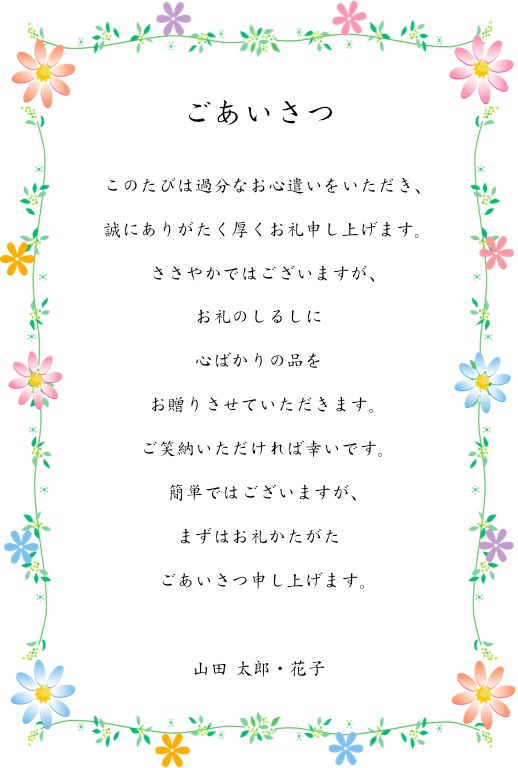 ごあいさつ
このたびは過分なお心遣いをいただき、
誠にありがたく厚くお礼申し上げます。
ささやかではございますが、
お礼のしるしに
心ばかりの品を
お贈りさせていただきます。
ご笑納いただければ幸いです。
簡単ではございますが、
まずはお礼かたがた
ごあいさつ申し上げます。
山田 太郎・花子